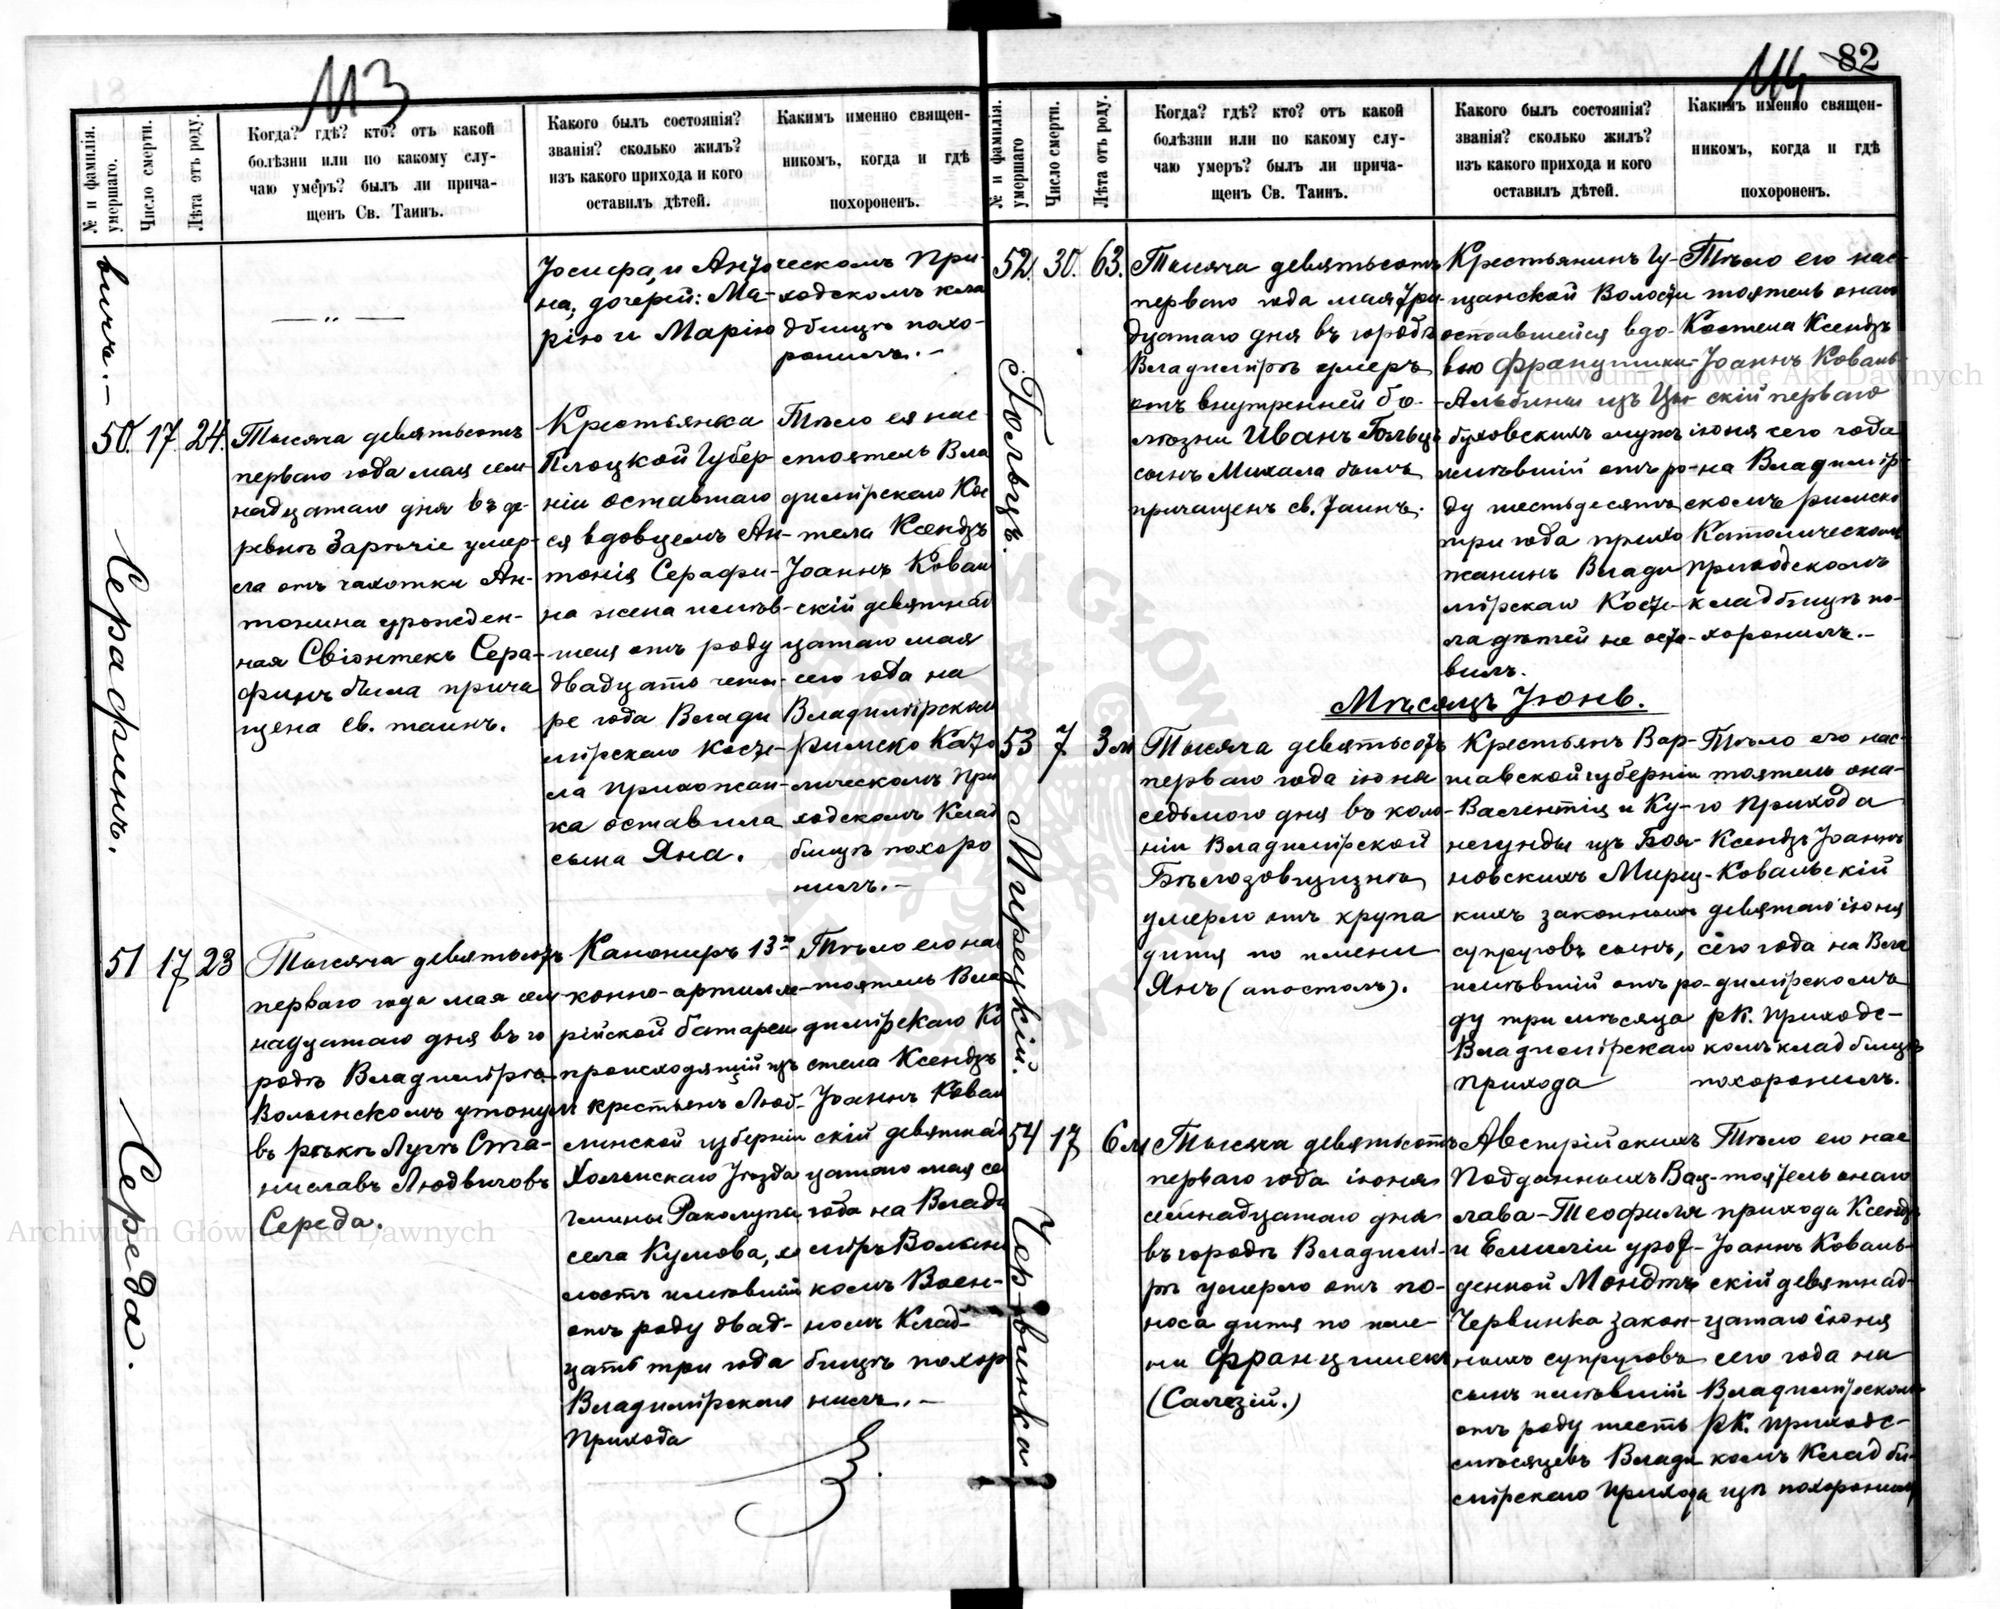 113
№ и фамилія умершаго.
Число смерти.
Лѣта отъ роду.
Когда? гдѣ? кто? отъ какой
болѣзни или по какому слу-
чаю умеръ? былъ ли прича-
щенъ Св. Таинъ.
Какого былъ состоянія?
званія? сколько жилъ?
изъ какого прихода и кого
оставилъ дѣтей.
Какимъ именно священ-
никомъ, когда и гдѣ
похороненъ.
вичъ.—
— „ —
Іосифа, и Анто
на, дочерей: Ма-
рію и Марію
ческомъ При-
ходскомъ кла
дбищѣ похо-
ронилъ.—
50. 17. 24.
Серафинъ.
Тысяча девятьсотъ
перваго года мая сем
надцатаго дня въ де-
ревнѣ Зарѣчіе умер-
ла отъ чахотки Ан-
тонина урожден-
ная Свіонтекъ Сера-
финъ была прича
щена св. таинъ.
Крестьянка
Плоцкой Губер
ніи оставшаго
ся вдовцемъ Ан-
тонія Серафи-
на жена имѣв-
шая отъ роду
двадцать четы-
ре года Влади
мірскаго Косте-
ла прихожан-
ка оставила
сына Яна.
Тѣло ея нас-
тоятель Вла
димірскаго Кос
тела Ксендзъ
Іоаннъ Коваль
скій девятнад
цатаго мая
сего года на
Владимірском
Римско Като
лическомъ При
ходскомъ Клад
бищѣ похоро
нилъ.—
51 17 23
Середа.
Тысяча девятьсотъ
перваго года мая сем
надцатаго дня въ го
родѣ Владимірѣ-
Волынскомъ утонулъ
въ рѣкѣ Лугѣ Ста-
ниславъ Людвиговъ
Середа.
Канониръ 13й
конно-артилле-
рійской батареи
происходящій изъ
крестьянъ Люб-
линской губерніи
Холмскаго Уѣзда
Гмины Раколупы
села Кумова, хо
лостъ имѣвшій
отъ роду двад-
цать три года
Владимірскаго
Прихода
Тѣло его на
тоятель Вла
димірскаго Ко
стела Ксендзъ
Іоаннъ Ковал
скій девятнад
цатаго мая се
года на Влади
міръ Волын
комъ Воен-
номъ Клад-
бищѣ похор
нилъ.—
114
82
№ и фамилія умершаго
Число смерти.
Лѣта отъ роду.
Когда? гдѣ? кто? отъ какой
болѣзни или по какому слу-
чаю умеръ? былъ ли прича-
щенъ Св. Таинъ.
Какого былъ состоянія?
званія? сколько жилъ?
изъ какого прихода и кого
оставилъ дѣтей.
Какимъ именно священ-
никомъ, когда и гдѣ
похороненъ.
52. 30. 63.
Гольцъ.
Тысяча девятьсотъ
перваго года мая три
дцатаго дня въ городѣ
Владимірѣ умеръ
отъ внутренней бо-
лѣзни Иванъ Гольцъ
сынъ Михала былъ
причащенъ св. Таинъ.
Крестьянинъ Гу-
щанской Волости
оставшейся вдо-
вою Францишки-
Альбины изъ Цы-
буховскихъ мужъ
имѣвшій отъ ро-
ду шестьдесятъ
три года прихо
жанинъ Влади
мірскаго Косте-
ла дѣтей не оста-
вилъ.
Тѣло его нас-
тоятель онаго
Костела Ксендзъ
Іоаннъ Коваль-
скій перваго
іюня сего года
на Владимір-
скомъ римско
Католическомъ
приходскомъ
кладбищѣ по-
хоронилъ.—
Мѣсяцъ Іюнь.
53 7 3 м
Мирецкій.
Тысяча девятьсотъ
перваго года іюня
седьмого дня въ коло-
ніи Владимірской
Бѣлозовщизнѣ
умерло отъ крупа
дитя по имени
Янъ (апостолъ).
Крестьянъ Вар-
шавской губерніи
Валентія и Ку-
негунды изъ Боя-
новскихъ Мирец-
кихъ законныхъ
супруговъ сынъ,
имѣвшій отъ ро-
ду три мѣсяца
Владимірскаго
прихода
Тѣло его нас-
тоятель она-
го прихода
Ксендзъ Іоаннъ
Ковальскій
девятаго іюня
сего года на Вла
димірскомъ
рк. приходс-
комъ кладбищѣ
похоронилъ.
54 17 6 м
Червинка
Тысяча девятьсотъ
перваго года іюня
семнадцатаго дня
въ городѣ Владимі-
рѣ умерло отъ по-
носа дитя по име-
ни Францишекъ
(Салезій.)
Австрійскихъ
Подданныхъ Вац-
лава-Теофиля
и Емиліи урож-
денной Мондтъ
Червинка закон-
ныхъ супруговъ
сынъ имѣвшій
отъ роду шесть
мѣсяцевъ Влади
мірскаго прихода
Тѣло его нас
тоятель онаго
прихода Ксендзъ
Іоаннъ Коваль-
скій девятнад-
цатаго іюня
сего года на
Владимірскомъ
рк. приходс-
комъ Кладби-
щѣ похоронилъ
Archiwum Główne Akt Dawnych
Archiwum Główne Akt Dawnych